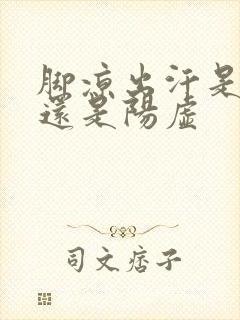 脚凉出汗是
還是陽虛
司文痞子